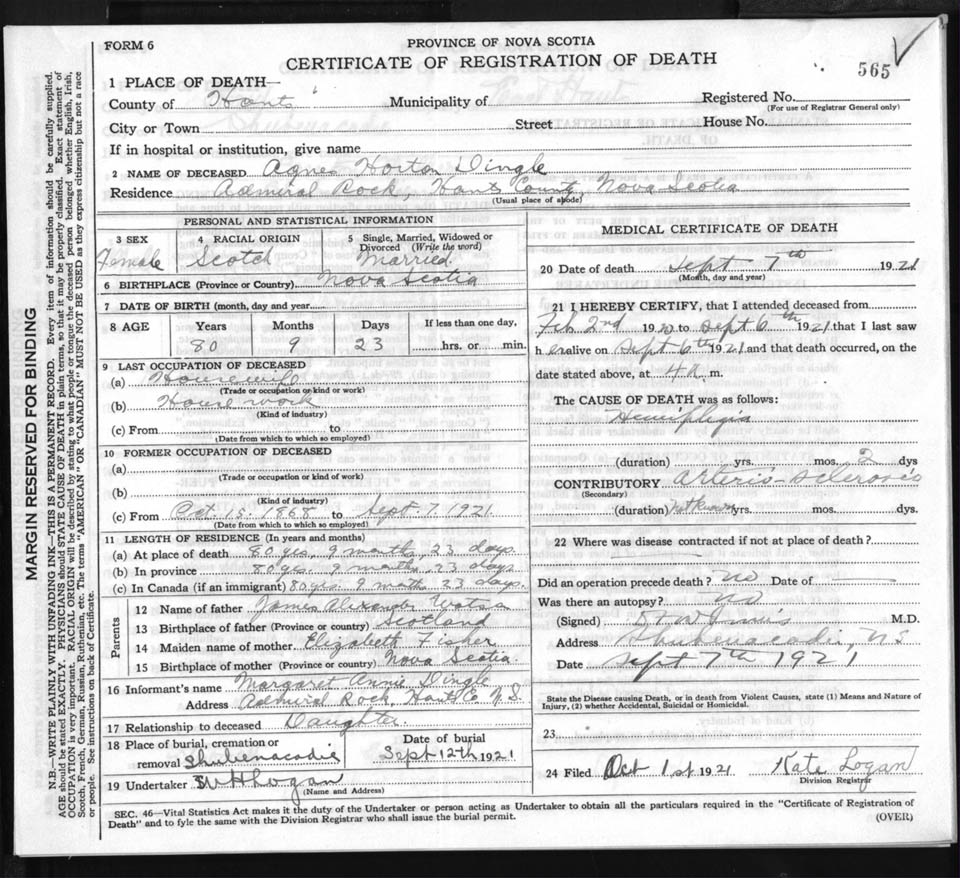 FORM 6
PROVINCE OF NOVA SCOTIA
CERTIFICATE OF REGISTRATION OF DEATH
565
1 PLACE OF DEATH—
County of Hants Municipality of East Hants Registered No.
(For use of Registrar General only)
City or Town Shubenacadie Street House No.
If in hospital or institution, give name
2 NAME OF DECEASED Agnes Horton Dingle
Residence Admiral Rock, Hants County, Nova Scotia
(Usual place of abode)
PERSONAL AND STATISTICAL INFORMATION
3 SEX 4 RACIAL ORIGIN 5 Single, Married, Widowed or Divorced (Write the word)
Female Scotch Married
6 BIRTHPLACE (Province or Country) Nova Scotia
7 DATE OF BIRTH (month, day and year)
8 AGE Years Months Days If less than one day,
80 9 23 hrs. or min.
9 LAST OCCUPATION OF DECEASED
(a) Housewife
(Trade or occupation or kind or work)
(b) House work
(Kind of industry)
(c) From to
(Date from which to which so employed)
10 FORMER OCCUPATION OF DECEASED
(a)
(Trade or occupation or kind of work)
(b)
(Kind of industry)
(c) From Oct. 15, 1868 to Sept. 7, 1921
(Date from which to which so employed)
11 LENGTH OF RESIDENCE (In years and months)
(a) At place of death 80 yrs, 9 months, 23 days.
(b) In province 80 yrs. 9 months, 23 days
(c) In Canada (if an immigrant) 80 yrs. 9 months 23 days.
Parents
12 Name of father James Alexander
13 Birthplace of father (Province or country) Scotland
14 Maiden name of mother Elizabeth Fisher
15 Birthplace of mother (Province or country) Nova Scotia
16 Informant's name Margaret Annie Dingle
Address Admiral Rock, Hants Co N.S.
17 Relationship to deceased Daughter.
18 Place of burial, cremation or removal Shubenacadie Date of burial Sept 12th 1921
19 Undertaker W H Logan
(Name and Address)
MEDICAL CERTIFICATE OF DEATH
20 Date of death Sept 7th 1921
(Month, day and year)
21 I HEREBY CERTIFY, that I attended deceased from
Feb 2nd 1920 to Sept 6th 1921 that I last saw
her alive on Sept 6th 1921 and that death occurred, on the
date stated above, at 4 a. m.
The CAUSE OF DEATH was as follows:
Hemiplegia
(duration) yrs. mos. 2 dys
CONTRIBUTORY Arterio-sclerosis
(Secondary)
(duration) Not known yrs. mos. dys.
22 Where was disease contracted if not at place of death?
Did an operation precede death? no Date of
Was there an autopsy? no
(Signed) M.D.
Address Shubenacadie, NS
Date Sept 7th 1921
State the Disease causing Death, or in death from Violent Causes, state (1) Means and Nature of
Injury, (2) whether Accidental, Suicidal or Homicidal.
23
24 Filed Oct 1st 1921 Kate Logan
Division Registrar
SEC. 46—Vital Statistics Act makes it the duty of the Undertaker or person acting as Undertaker to obtain all the particulars required in the "Certificate of Registration of
Death" and to fyle the same with the Division Registrar who shall issue the burial permit.
(OVER)
MARGIN RESERVED FOR BINDING
N.B.—WRITE PLAINLY WITH UNFADING INK—THIS IS A PERMANENT RECORD. Every item of information should be carefully supplied.
AGE should be stated EXACTLY. PHYSICIANS should STATE CAUSE OF DEATH in plain terms, so that it may be properly classified. Exact statement of
OCCUPATION is very important. RACIAL ORIGIN will be described by stating to what people or tongue the deceased person belonged whether English, Irish,
Scotch, French, German, Russian, Ruthenian, etc. The terms "AMERICAN" OR "CANADIAN" MUST NOT BE USED as they express citizenship but not a race
or people. See instructions on back of Certificate.